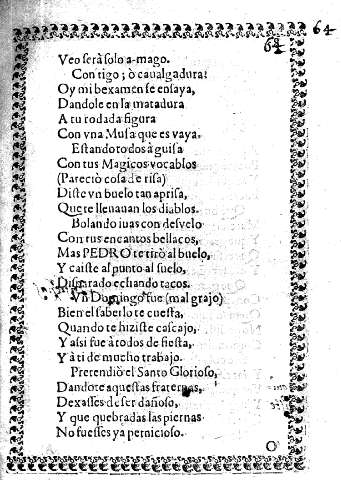 64
64
Veo serà solo a-mago.
Contigo; ò caualgadura!
Oy mi bexamen se ensaya,
Dandole en la matadura
A tu rodada figura
Con vna Musa que es vaya.
Estando todos à guisa
Con tus Magicos vocablos
(Pareciò cosa de risa)
Diste vn buelo tan aprisa,
Que te lleuauan los diablos.
Bolando iuas con desvelo
Con tus encantos bellacos,
Mas PEDRO te tirò al buelo,
Y caiste al punto al suelo,
Disparado echando tacos.
Vn Domingo fue (mal grajo)
Bien el saberlo te cuesta,
Quando te hiziste cascajo,
Y assi fue à todos de fiesta,
Y à ti de mucho trabajo.
Pretendiò el Santo Glorioso,
Dandote aquestas fraternas,
Dexasses de ser dañoso,
Y que quebradas las piernas
No fuesses ya pernicioso.
O